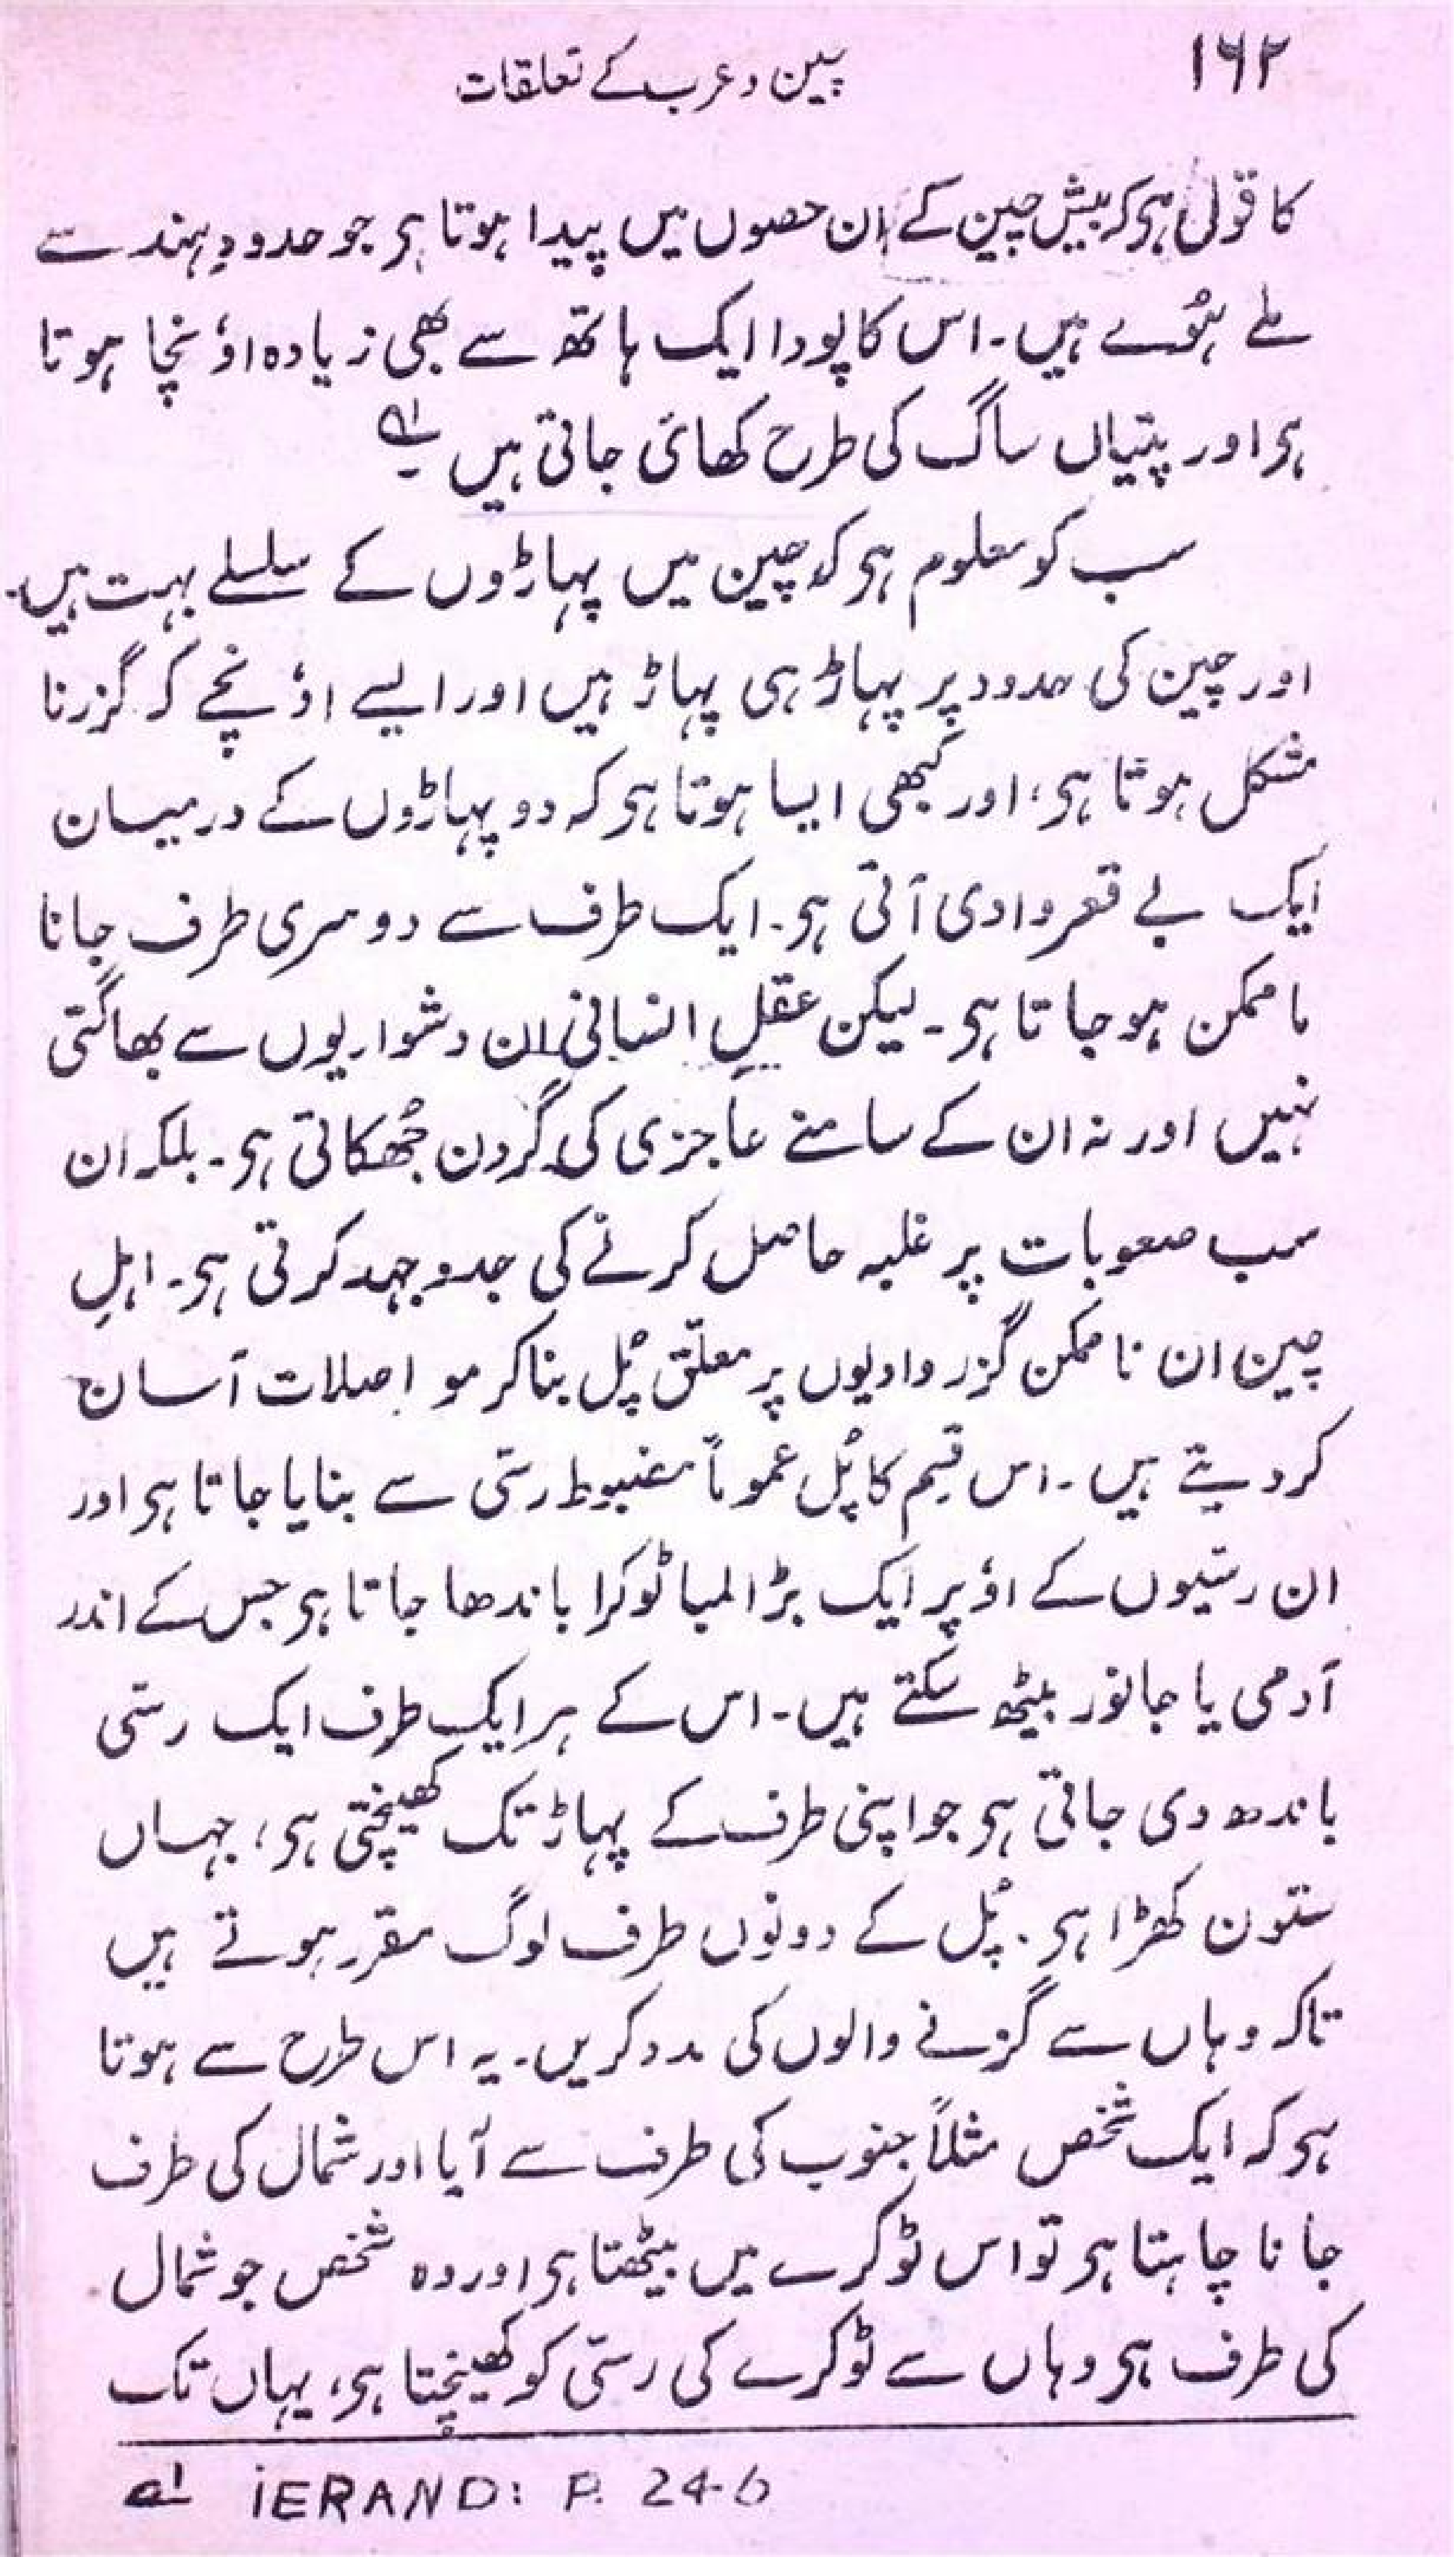 ۱۶۲
چین و عرب کے تعلقات
کا قول ہی کہ بیش چین کے ان حصوں میں پیدا ہوتا ہی جو حدودِ ہند سے
ملے ہُوے ہیں۔ اس کا پودا ایک ہاتھ سے بھی زیادہ اوٗنچا ہوتا
ہی اور پتیاں ساگ کی طرح کھائی جاتی ہیں لہ
سب کو معلوم ہی کہ چین میں پہاڑوں کے سلسلے بہت ہیں۔
اور چین کی حدود پر پہاڑ ہی پہاڑ ہیں اور ایسے اوٗنچے کہ گزرنا
مشکل ہوتا ہی؛ اور کبھی ایسا ہوتا ہی کہ دو پہاڑوں کے درمیان
ایک بے قعر وادی آتی ہی۔ ایک طرف سے دوسری طرف جانا
ناممکن ہو جاتا ہی۔ لیکن عقلِ انسانی ان دشواریوں سے بھاگتی
نہیں اور نہ ان کے سامنے عاجزی کی گردن جُھکاتی ہی۔ بلکہ ان
سب صعوبات پر غلبہ حاصل کرنے کی جدوجہد کرتی ہی۔ اہلِ
چین ان ناممکن گزر وادیوں پر معلّق پُل بنا کر مواصلات آسان
کر دیتے ہیں۔ اس قسم کا پُل عموماً مضبوط رسّی سے بنایا جاتا ہی اور
ان رسّیوں کے اوٗپر ایک بڑا لمبا ٹوکرا باندھا جاتا ہی جس کے اندر
آدمی یا جانور بیٹھ سکتے ہیں۔ اس کے ہر ایک طرف ایک رسّی
باندھ دی جاتی ہی جو اپنی طرف کے پہاڑ تک کھینچتی ہی؛ جہاں
ستون کھڑا ہی۔ پُل کے دونوں طرف لوگ مقرر ہوتے ہیں
تاکہ وہاں سے گزرنے والوں کی مدد کریں۔ یہ اس طرح سے ہوتا
ہی کہ ایک شخص مثلاً جنوب کی طرف سے آیا اور شمال کی طرف
جانا چاہتا ہی تو اس ٹوکرے میں بیٹھتا ہی اور وہ شخص جو شمال
کی طرف ہی وہاں سے ٹوکرے کی رسّی کو کھینچتا ہی، یہاں تک
لہ iERAND: P. 24-6